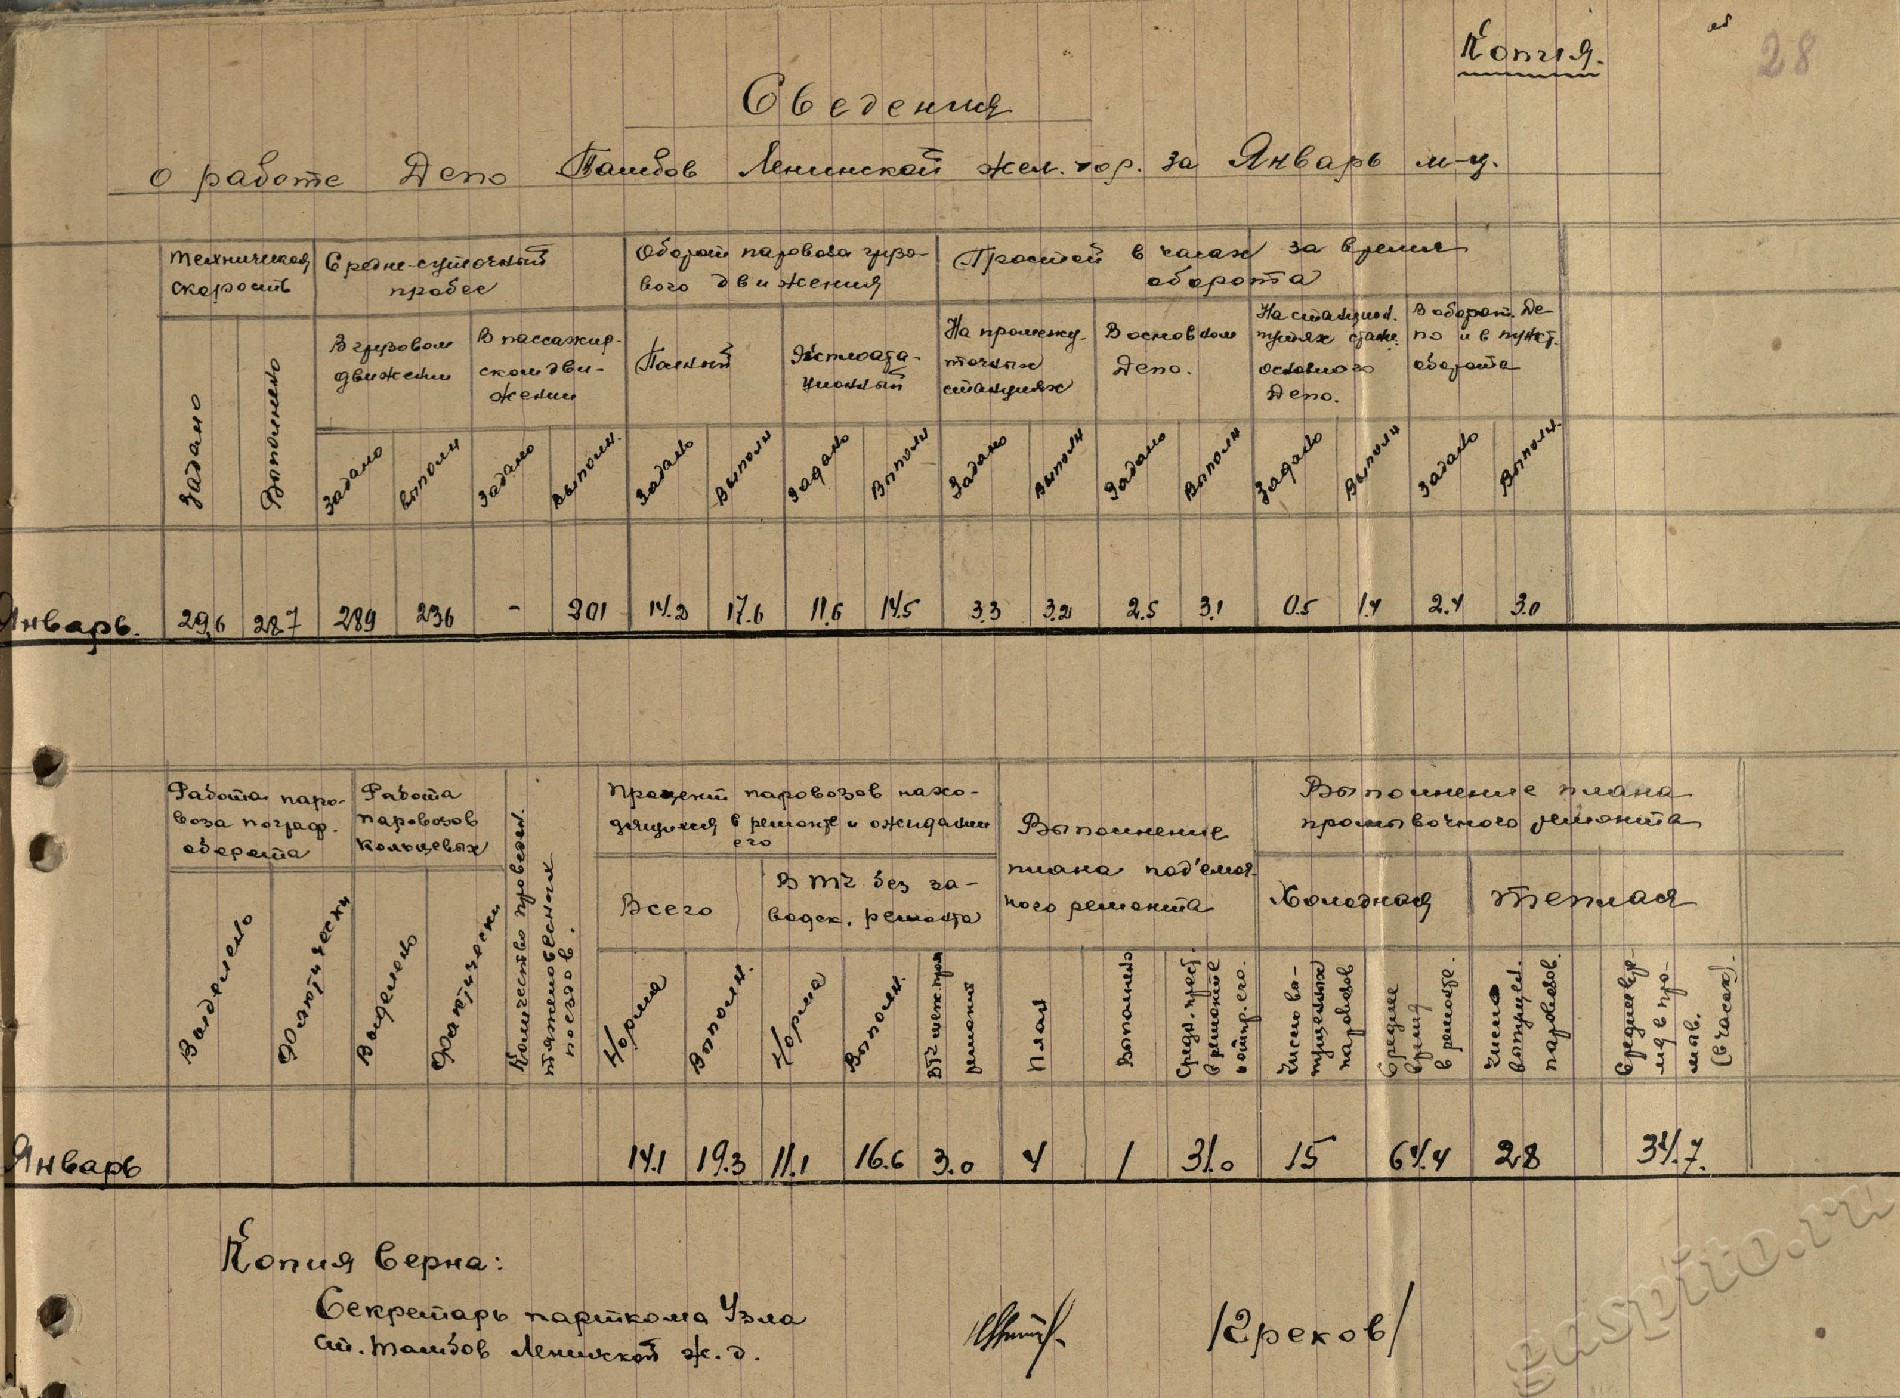 Копия.
28
Сведения
о работе Депо Тамбов Ленинской жел. дор. за Январь м-ц.
Техническая скорость
Средне-суточный пробег
Оборот паровоза грузо-
вого движения
Простой в часах за время
оборота
Задано
Выполнено
В грузовом
движении
В пассажир-
ском дви-
жении
Полный
Эксплоата-
ционный
На промежу-
точных
станциях
В основном
Депо.
На станцион.
путях станц.
основного
Депо.
В оборот. Де-
по и в пункт.
оборота
Задано
выполн
Задано
Выполн.
Задано
Выполн
Задано
Выполн
Задано
Выполн
Задано
Выполн
Задано
Выполн
Задано
Выполн.
Январь. 29,6 28.7 289 236 - 201 14.2 17.6 11.6 14.5 3.3 3.2 2.5 3.1 0.5 1.4 2.4 3.0
Работа паро-
воза по граф.
оборота
Работа
паровозов
кольцевых
Количество проведен.
тяжеловесных
поездов.
Процент паровозов нахо-
дящихся в ремонте и ожидании
его
Выполнение
плана под'емоч-
ного ремонта
Выполнение плана
промывочного ремонта
Всего
В ТЧ без за-
водск. ремонта
Холодная
Теплая
Выделено
Фактически
Выделено
Фактически
Норма
Выполн.
Норма
Выполн.
План
Выполнено
Средн. прост.
в ремонте
Число вы-
пущенных
паровозов
Среднее
время
в ремонте.
Число
выпущен.
паровозов.
Среднее вр-
мя в про-
мыв.
(в часах).
Январь 14.1 19.3 11.1 16.6 3.0 4 1 31.0 15 64.4 28 34.7.
Копия верна:
Секретарь парткома Узла
ст. Тамбов Ленинской ж. д.
/Греков/
gaspito.ru